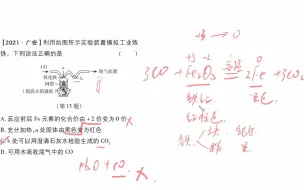 【2021·广安】利用如图所示实验装置模拟工业炼
铁。下列说法正确的是 ( )
尾气处理
(第13题)
A.反应前后Fe元素的化合价由+2价变为0价
B.充分加热,a处固体由黑色变为红色
b处可以用澄清石灰水检验生成的CO₂
D.可用水吸收尾气中的CO
H₂O+CO X
+3 → 0
3CO+Fe₂O₃ 高温 2Fe+3CO₂
铁红
红棕色
黑色
铁
块
粉